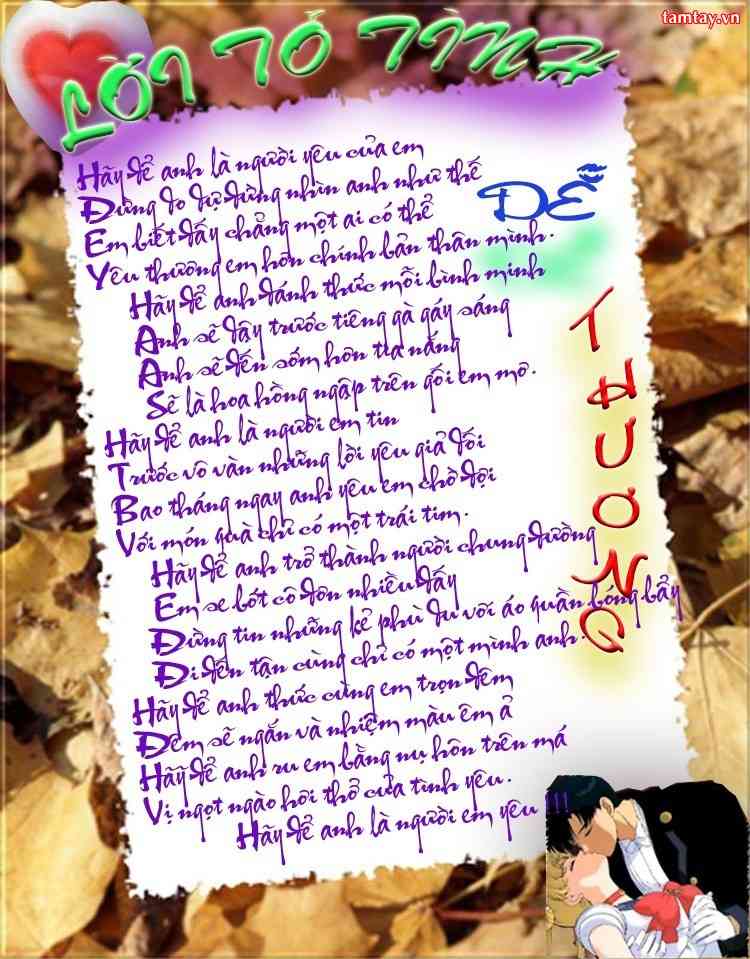 tamtay.vn
LỜI TỎ TÌNH
DỄ
THƯƠNG
Hãy để anh là người yêu của em
Đừng do dự đừng nhìn anh như thế
Em biết đấy chẳng một ai có thể
Yêu thương em hơn chính bản thân mình.
Hãy để anh đánh thức mỗi bình minh
Anh sẽ dậy trước tiếng gà gáy sáng
Anh sẽ đến sớm hơn tia nắng
Sẽ là hoa hồng ngập trên gối em mơ.
Hãy để anh là người em tin
Trước vô vàn những lời yêu giả dối
Bao tháng ngay anh yêu em chờ đợi
Với món quà chỉ có một trái tim.
Hãy để anh trở thành người chung đường
Em se bớt cô đơn nhiều đấy
Đừng tin những kẻ phù du với áo quần bóng bẩy
Đi đến tận cùng chỉ có một mình anh.
Hãy để anh thức cùng em trọn đêm
Đêm sẽ ngắn và nhiệm màu êm ả
Hãy để anh ru em bằng nụ hôn trên má
Vị ngọt ngào hơi thở của tình yêu.
Hãy để anh là người em yêu !!!